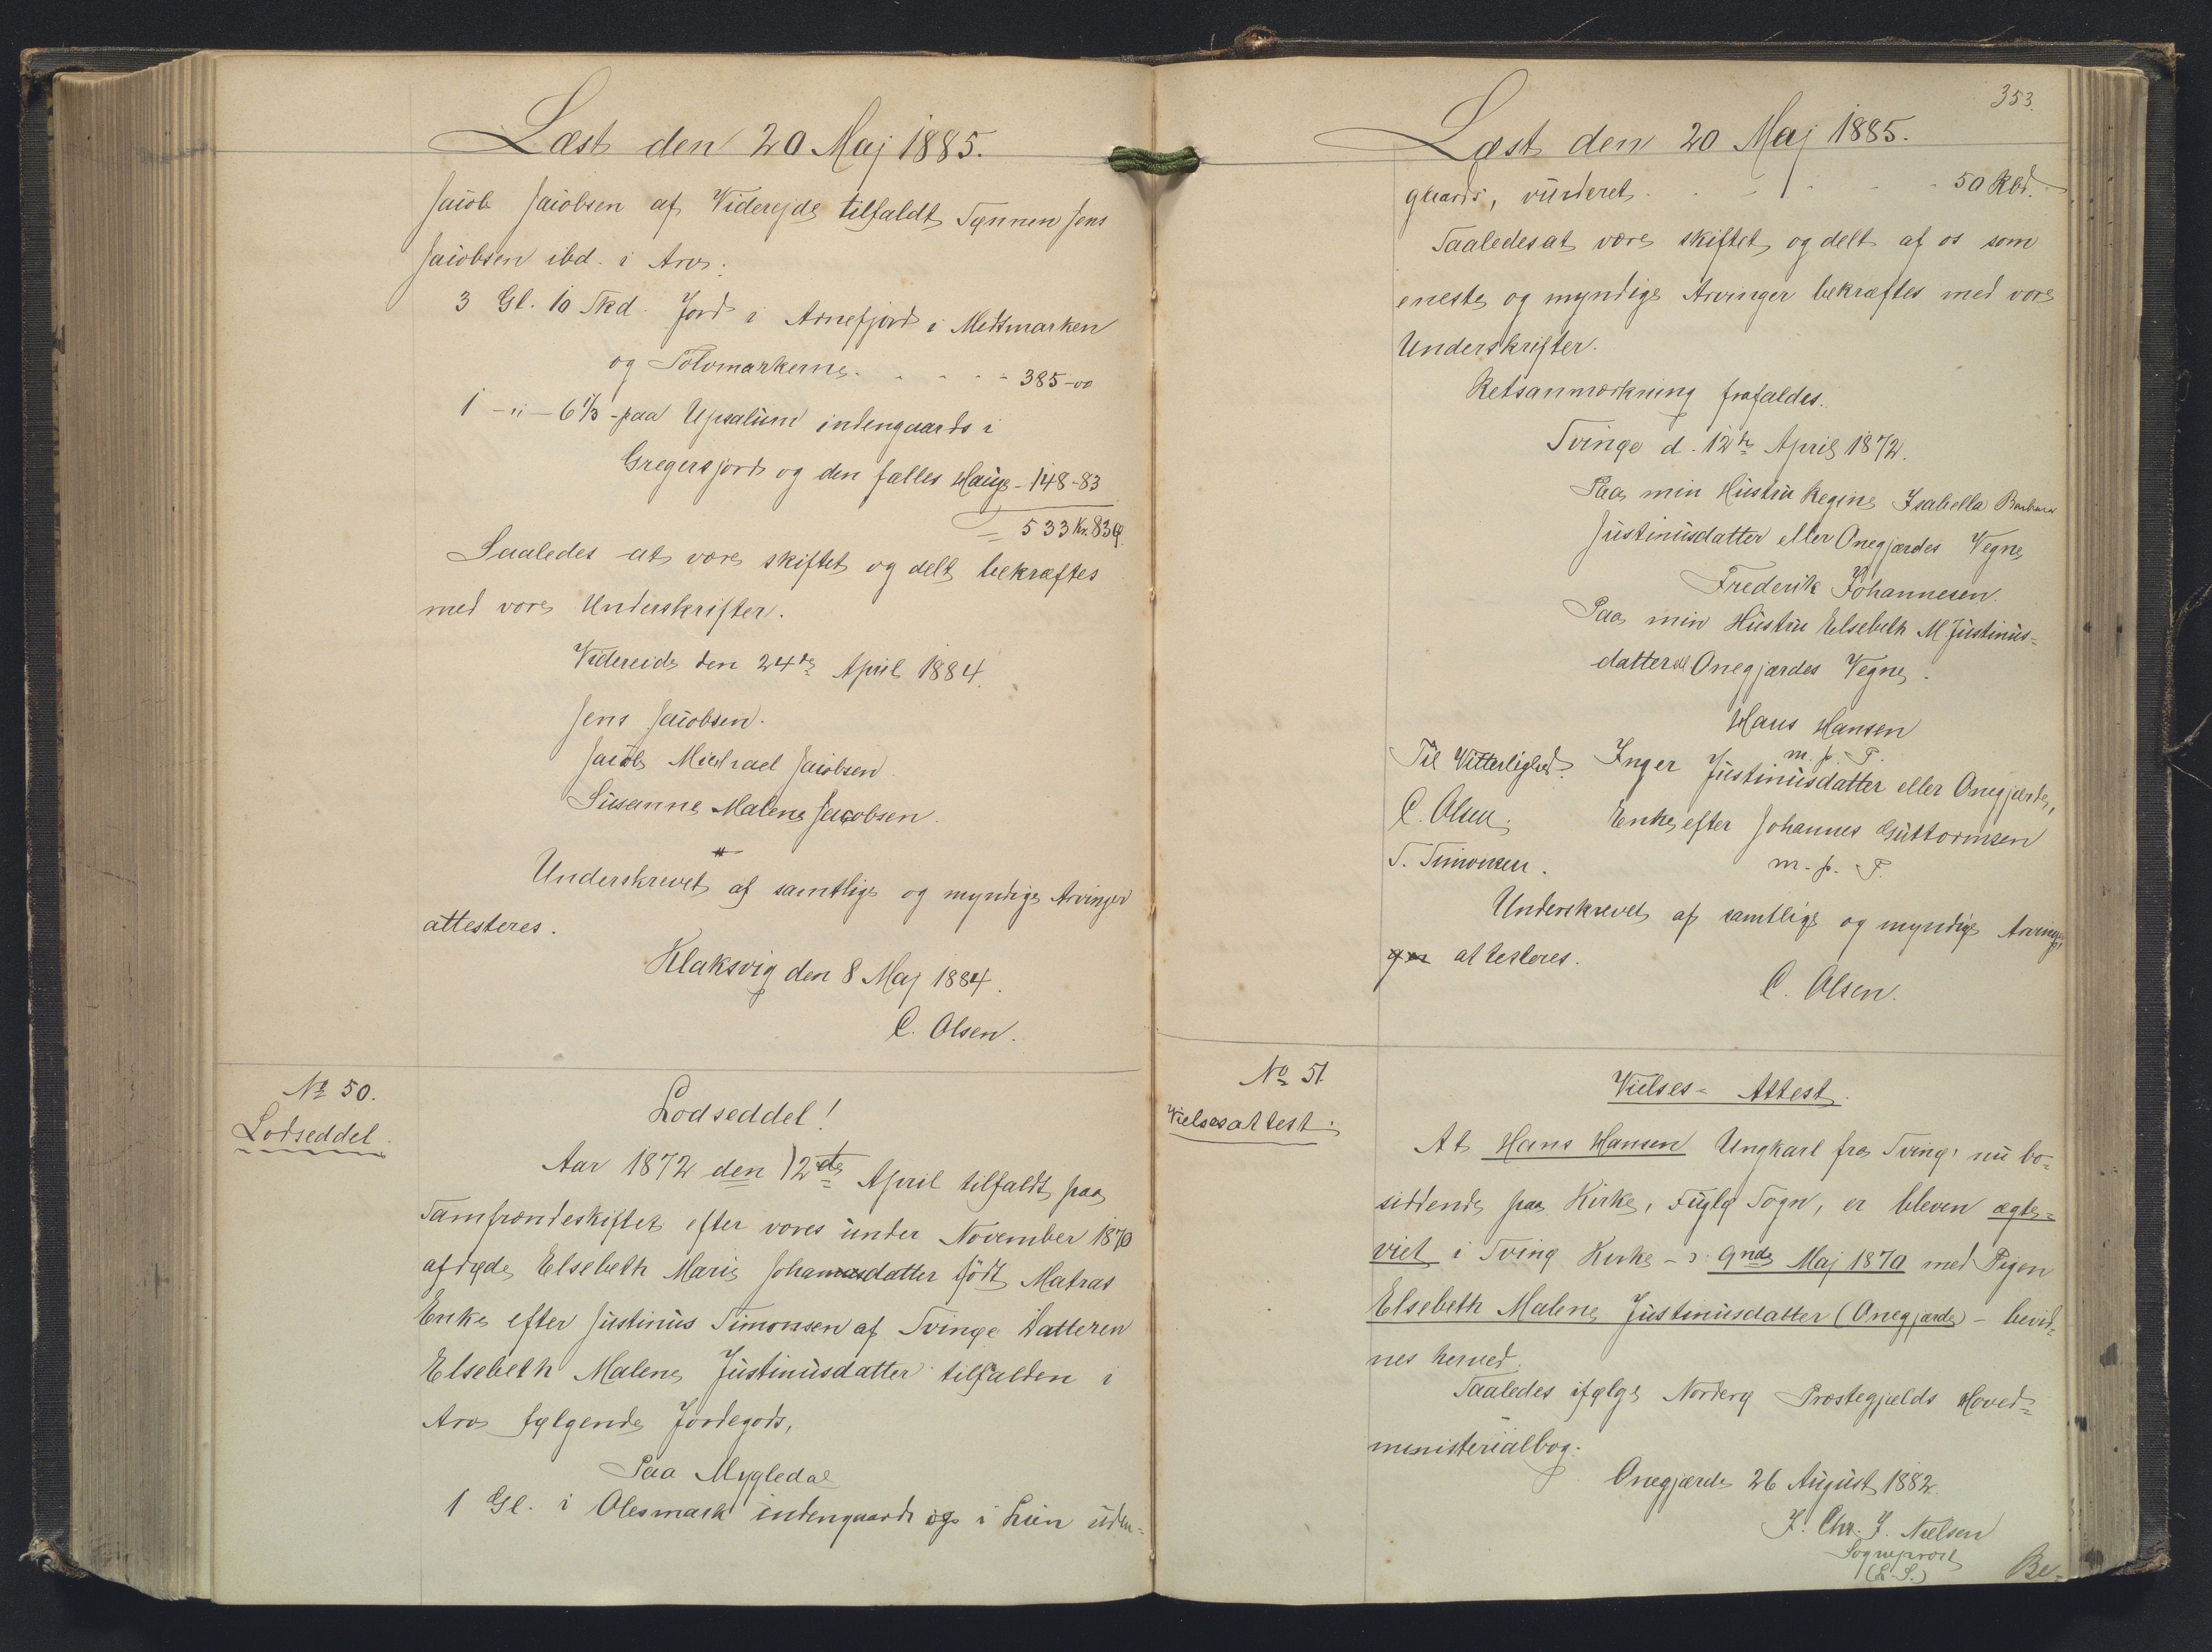 Læst den 20 Maj 1885.
Jacob Jacobsen af Viderejde tilfaldt Sønnen Jens
Jacobsen ibd. i Arv:
3 Gl. 10 Skd. Jord i Arnefjord i Midtmarken
og Tolvmarkerne. - - - - 385-00
1 - " - 6 1/3 - paa Upsalum indengaards i
Gregersjord og den fælles Hauge - 148-83
= 533 Kr. 83 Ø
Saaledes at være skiftet og delt bekræftes
med vore Underskrifter.
Videreide den 24de April 1884.
Jens Jacobsen.
Jacob Michael Jacobsen.
Susanne Malene Jacobsen.
Underskrevet af samtlige og myndige Arvinger
attesteres.
Klaksvig den 8 Maj 1884.
C. Olsen.
No 50.
Lodseddel.
Lodseddel!
Aar 1872 den 12te April tilfaldt paa
Samfrændeskiftet efter vores under November 1870
afdøde Elsebeth Marie Johannesdatter født Matras
Enke efter Justinus Simonsen af Svinge Datteren
Elsebeth Malene Justinusdatter tilfalden i
Arv følgende Jordegods,
Paa Mygledal
1 Gl. i Olesmark indengaards og i Lien uden-
353.
Læst den 20 Maj 1885.
gaards, vurderet - - - - 50 Rbd.
Saaledes at være skiftet og delt af os som
eneste og myndige Arvinger bekræftes med vore
Underskrifter.
Retsanmærkning frafaldes.
Svinge d. 12te April 1872.
Paa min Hustru Regine Isabella Barbara
Justinusdatter eller Onegjærdes Vegne
Frederik Johannesen.
Paa min Hustru Elsebeth M Justinus-
datter el Onegjærdes Vegne.
Hans Hansen
m. f. P.
Til Vitterlighed. Inger Justinusdatter eller Onegjærde,
C. Olsen. Enke efter Johannes Guttormsen
S. Simonsen. m. f. P.
Underskrevet af samtlige og myndige Arvinger
attesteres.
C. Olsen.
No 51.
Vielsesattest.
Vielses-Attest.
At Hans Hansen Ungkarl fra Sving, nu bo-
siddende paa Kirke, Fuglø Sogn, er bleven ægte-
viet i Sving Kirke - d. 9nde Maj 1870 med Pigen
Elsebeth Malene Justinusdatter (Onegjærde) - bevid-
nes herved.
Saaledes ifølge Norderø Præstegjælds Hoved-
ministerialbog.
Onegjærde 26 August 1882.
F. Chr. J. Nielsen
Sognepræst
(L.S.)
Be-